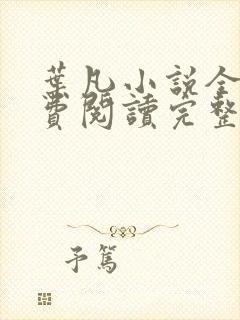 葉凡小說全
費閱讀完整
予篤